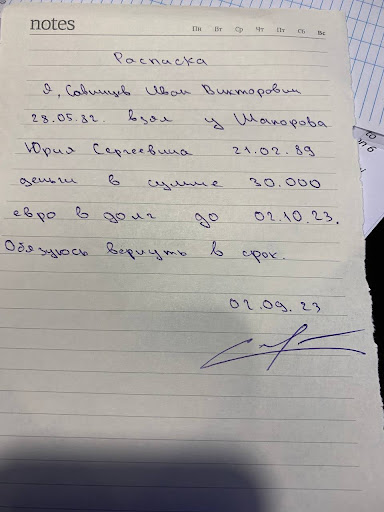 notes
Пн Вт Ср Чт Пт Сб Вс
Расписка
Я, Савинцев Иван Викторович
28.05.82. взял у Шапорова
Юрия Сергеевича 21.02.89
деньги в сумме 30.000
евро в долг до 02.10.23.
Обязуюсь вернуть в срок.
02.09.23